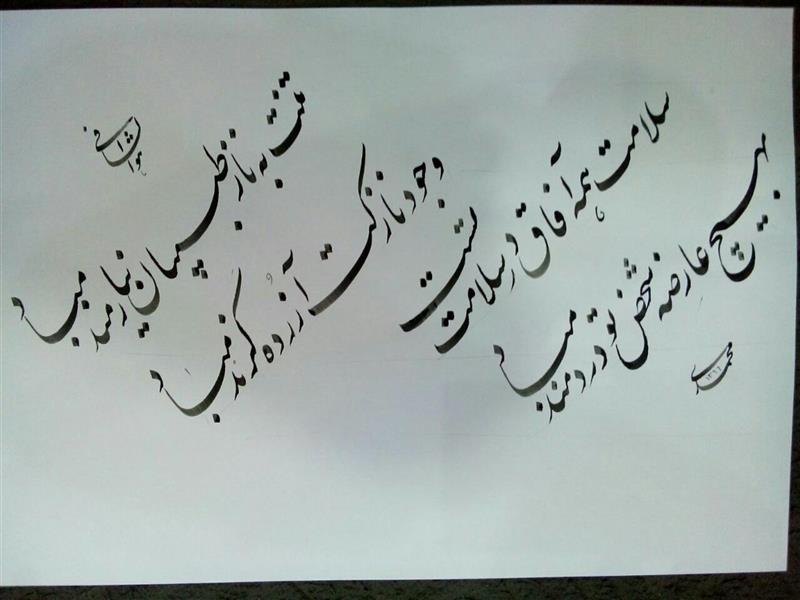 هوالشافی
تنت به ناز طبیبان نیازمند مباد
وجود نازکت آزرده گزند مباد
سلامت همه آفاق در سلامت تست
بهیچ عارضه شخص تو دردمند مباد
محمدی